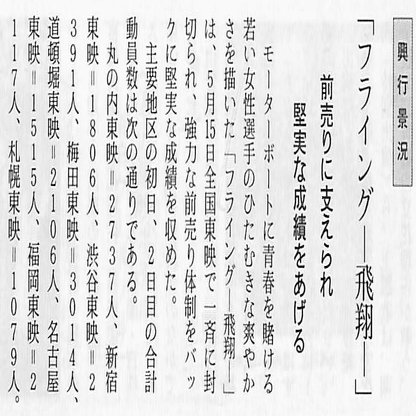 興行景況
「フライング―飛翔―」
前売りに支えられ
堅実な成績をあげる
モーターボートに青春を賭ける
若い女性選手のひたむきな爽やか
さを描いた「フライング―飛翔―」
は、5月15日全国東映で一斉に封
切られ、強力な前売り体制をバッ
クに堅実な成績を収めた。
主要地区の初日、2日目の合計
動員数は次の通りである。
丸の内東映＝2737人、新宿
東映＝1806人、渋谷東映＝2
391人、梅田東映＝3014人、
道頓堀東映＝2106人、名古屋
東映＝1515人、福岡東映＝2
117人、札幌東映＝1079人。